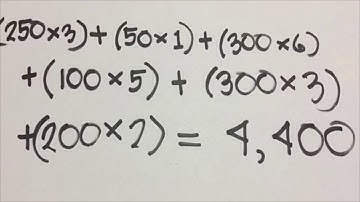 (250×3)+(50×1)+(300×6)
+(100×5)+(300×3)
+(200×2)=4,400